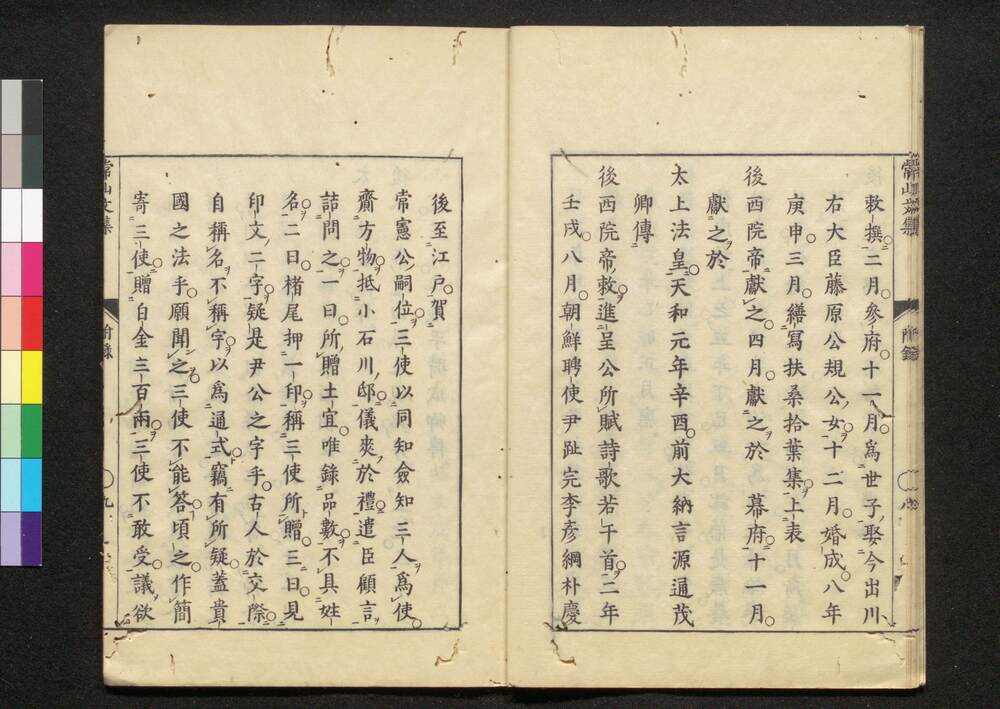 敕撰二月參府十一月爲世子娶今出川
右大臣藤原公規公女十二月婚成八年
庚申三月繕寫扶桑拾葉集上表
後西院帝獻之四月獻之於 幕府十一月
獻之於
太上法皇天和元年辛酉前大納言源通茂
卿傳
後西院帝敕進呈公所賦詩歌若干首二年
壬戌八月朝鮮聘使尹趾完李彥綱朴慶
常山文集
附錄
八
後至江戶賀
常憲公嗣位三使以同知僉知三人爲使
齎方物抵小石川邸儀爽於禮遣臣顧言
詰問之一曰所贈土宜唯錄品數不具姓
名二曰楮尾押一印稱三使所贈三曰見
印文二字疑是尹公之字乎古人於交際
自稱名不稱字以爲通式竊有所疑蓋貴
國之法乎願聞之三使不能答頃之作簡
寄三使贈白金三百兩三使不敢受議欲
常山文集
附錄
九